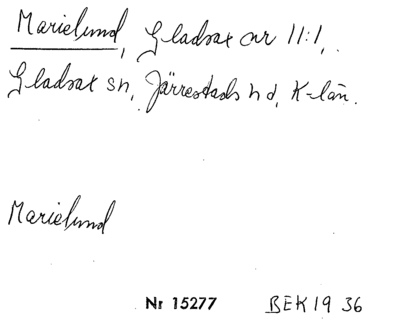 Marielund, Gladsax nr 11:1,
Gladsax sn, Järrestads hd, K-län.
Marielund
Nr 15277 BEK 19 36